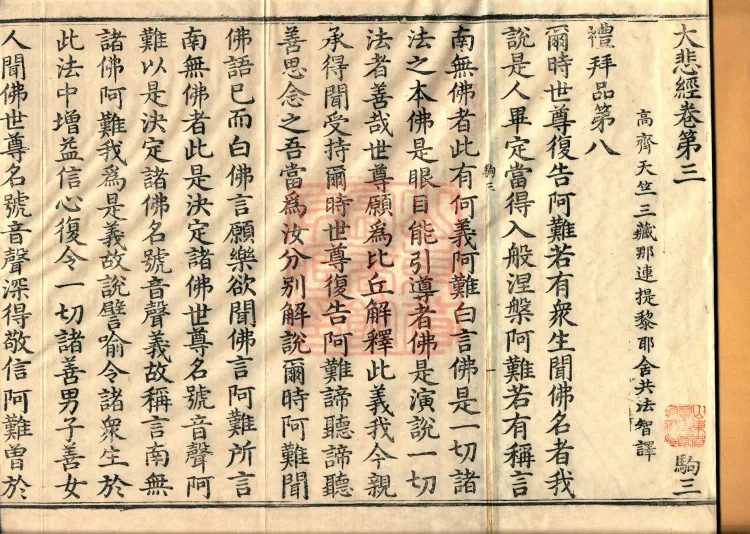 大悲經卷第三
駒三
高齊天竺三藏那連提黎耶舍共法智譯
禮拜品第八
爾時世尊復告阿難若有衆生聞佛名者我
說是人畢定當得入般涅槃阿難若有稱言
駒三
南無佛者此有何義阿難白言佛是一切諸
法之本佛是眼目能引導者佛是演說一切
法者善哉世尊願爲比丘解釋此義我今親
承得聞受持爾時世尊復告阿難諦聽諦聽
善思念之吾當爲汝分別解說爾時阿難聞
佛語已而白佛言願樂欲聞佛言阿難所言
南無佛者此是決定諸佛世尊名號音聲阿
難以是決定諸佛名號音聲義故稱言南無
諸佛阿難我爲是義故說譬喻令諸衆生於
此法中增益信心復令一切諸善男子善女
人聞佛世尊名號音聲深得敬信阿難曾於